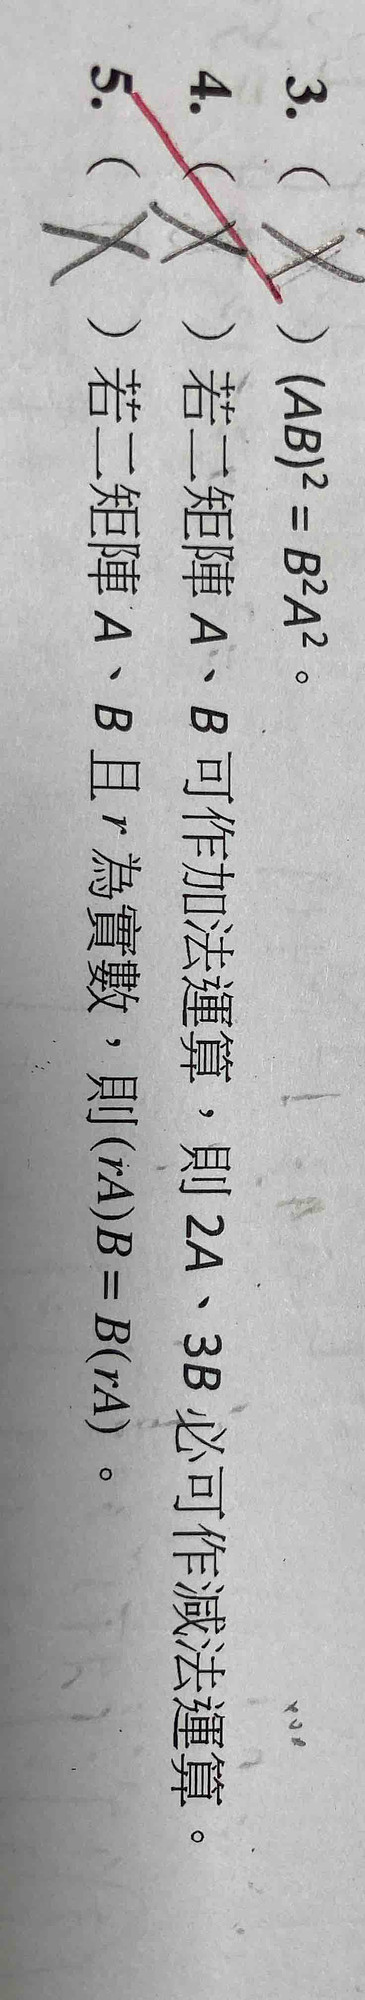 3. ( X ) (AB)² = B²A²。
4. ( X ) 若二矩陣 A、B 可作加法運算，則 2A、3B 必可作減法運算。
5. ( X ) 若二矩陣 A、B 且 r 為實數，則(rA)B = B(rA)。